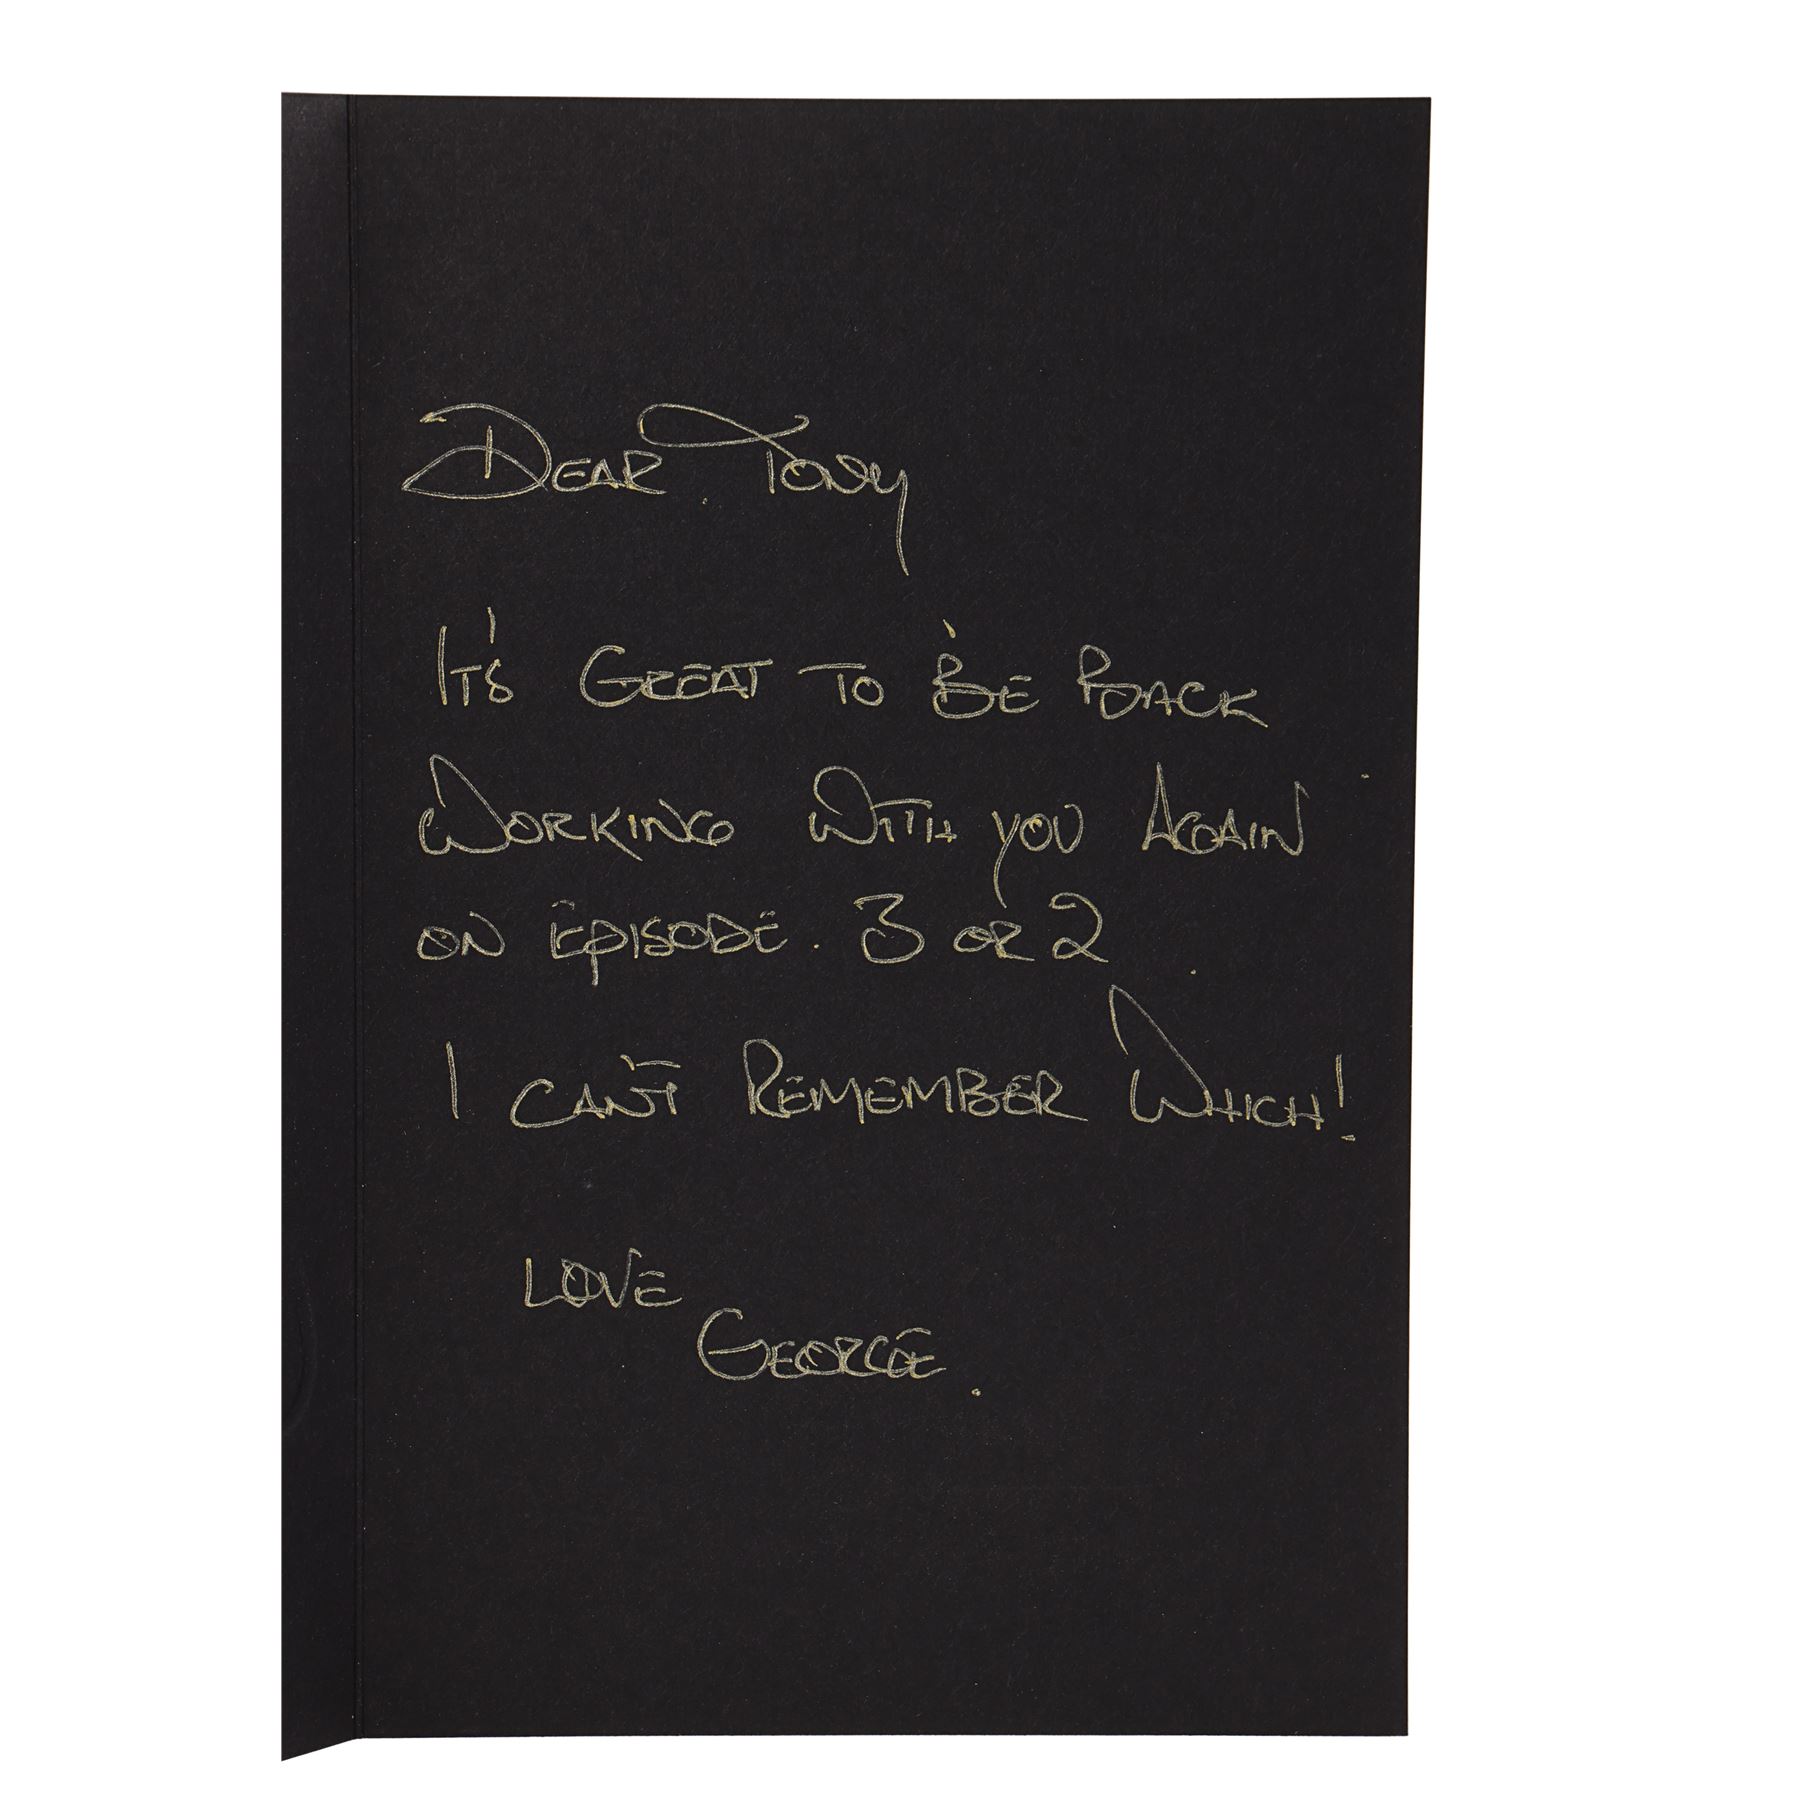 Dear Tony
It's Great to Be Back
Working With you Again
on Episode. 3 or 2
I can't Remember Which!
Love
George.